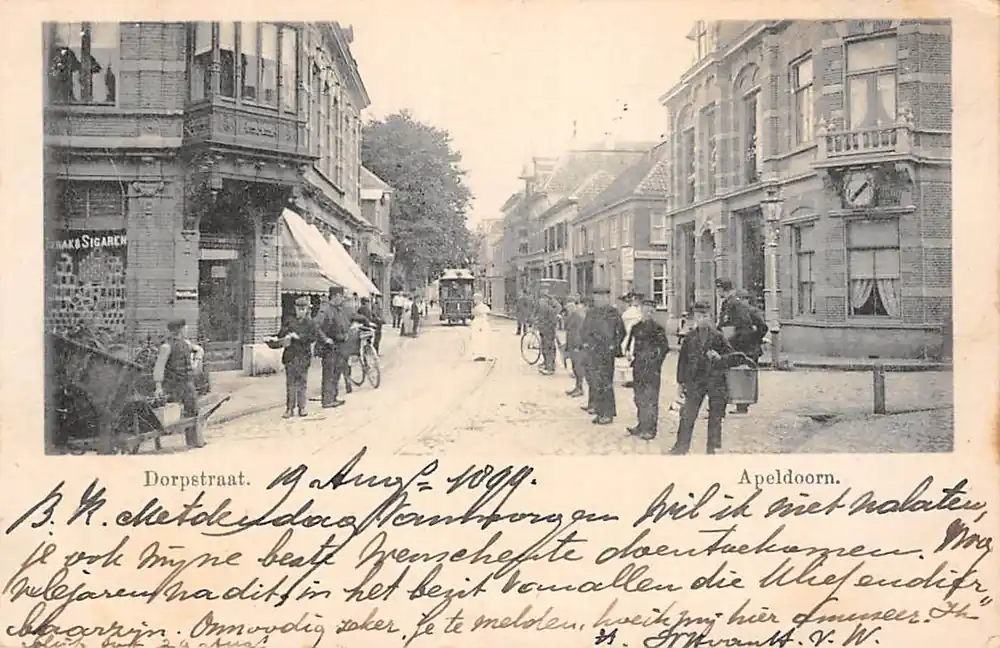 TABAK & SIGAREN
Dorpstraat. 19 Aug.s 1899. Apeldoorn.
B. K. Met den dag van morgen wil ik niet nalaten,
je ook mijne beste wenschen te doen toekomen. Nog
vele jaren na dit, in het bezit van allen die U lief en dier-
baar zijn. Onnoodig zeker, je te melden, hoe ik mij hier amuseer.